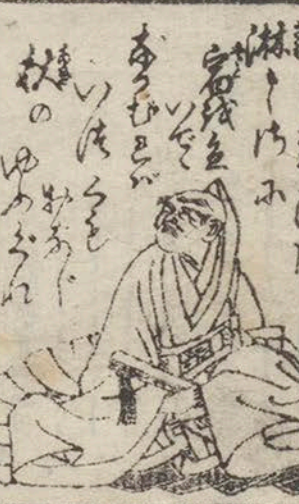 淋しさに
宿を立
いで
ながむれば
いづくも
おなじ
秋の
ゆふぐれ